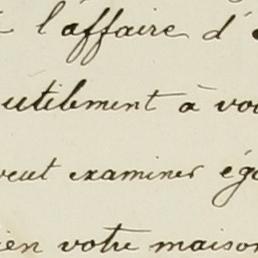 l'affaire d'
utilement à vo
veut examiner ég
ien votre maison